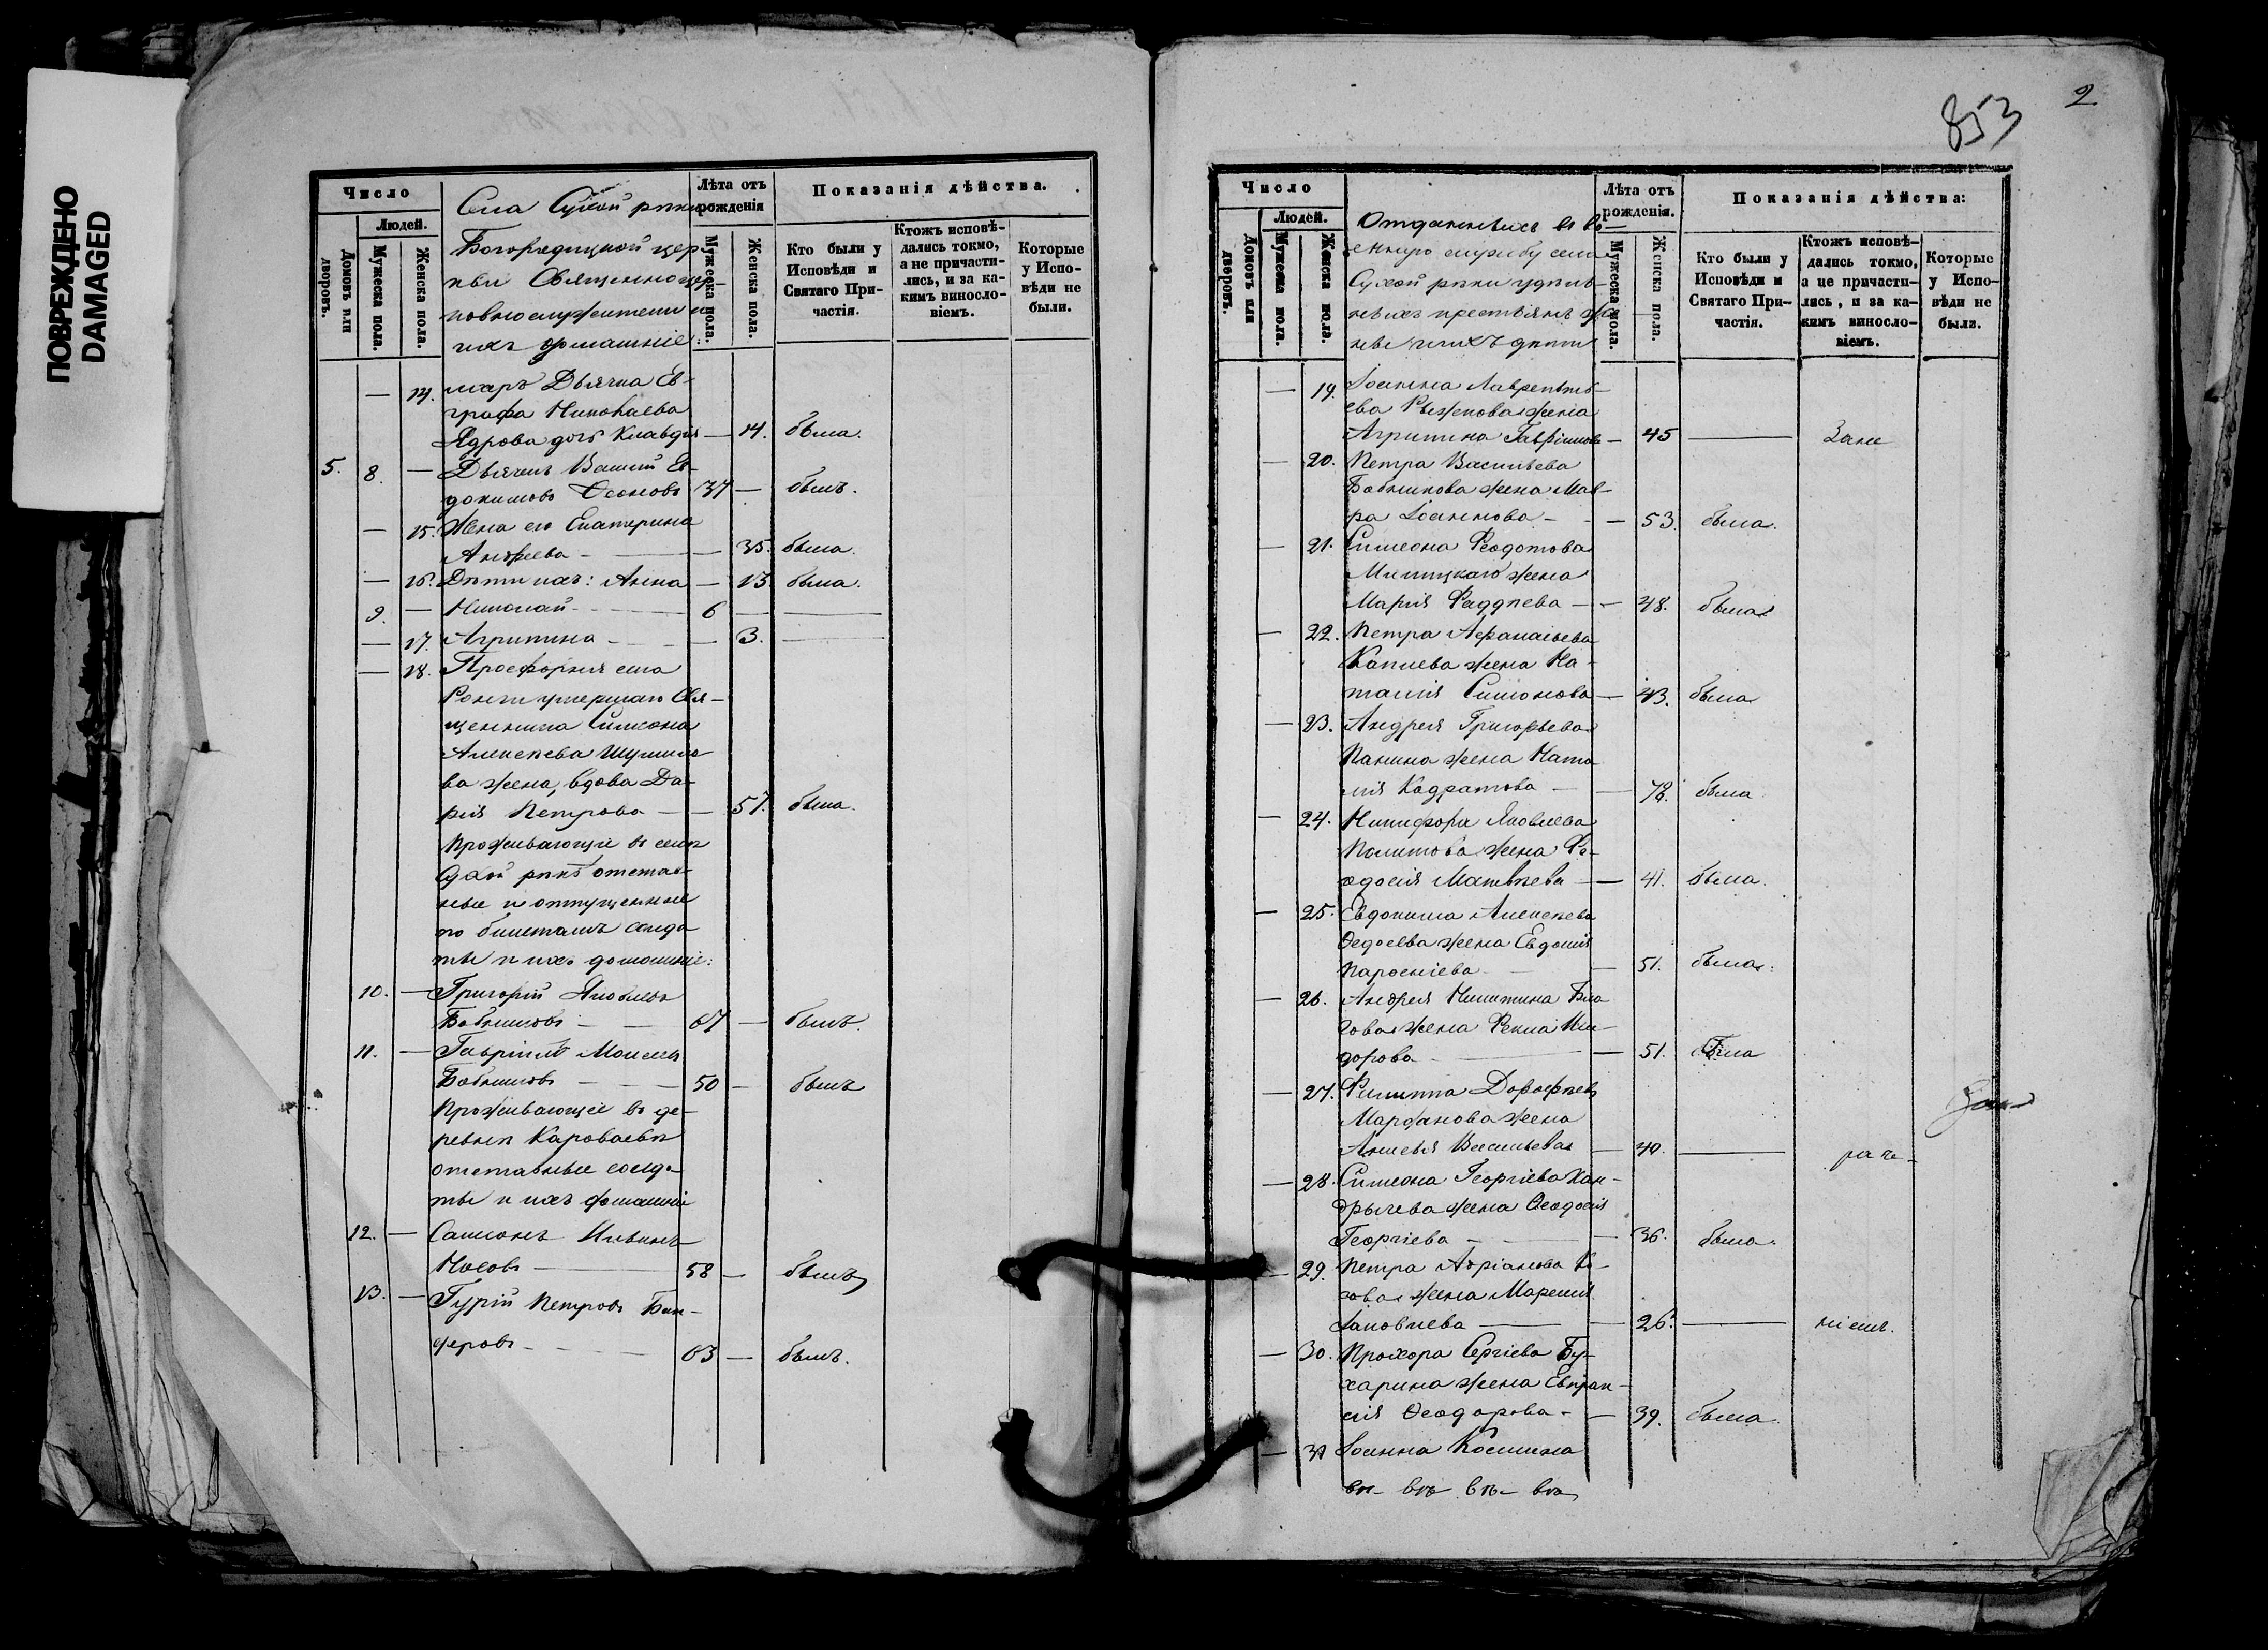 ПОВРЕЖДЕНО
DAMAGED
Число
Людей.
Домовъ или дворовъ.
Мужеска пола.
Женска пола.
Села Сухой рѣки
Богородицкой цер-
кви Священноцер-
ковнослужители и
ихъ домашніе:
Лѣта отъ
рожденія
Мужеска пола.
Женска пола.
Показанія дѣйства.
Кто были у
Исповѣди и
Святаго При-
частія.
Ктожъ исповѣ-
дались токмо,
а не причасти-
лись, и за ка-
кимъ виносло-
віемъ.
Которые
у Испо-
вѣди не
были.
— 14. Дьячка Ев-
графа Николаева
Ядрова дочь Клавдія — 14. была.
5. 8. — Дьячекъ Василій Ев-
докимовъ Ѳеоновъ 37 — былъ.
— 15. Жена его Екатерина
Андреева — — 35. была.
— 16. Дѣти ихъ: Анна — 13 была.
9. — Николай — 6 — —
— 17. Агрипина — — 3. —
— 18. Просфорня села
умершаго Свя-
щенника Симеона
Алексѣева Шумило-
ва жена, вдова Да-
рія Петрова — — 57. была.
Проживающіе въ селѣ
Сухой рѣкѣ отстав-
ные и отпущенные
по билетамъ солда-
ты и ихъ домашніе:
10. — Григорій Яковлевъ
Бобылковъ — — 67 — былъ.
11. — Гавріилъ Моисеевъ
Бобылковъ — — 50 — былъ
Проживающіе въ де-
ревнѣ Кароваевѣ
отставные солда-
ты и ихъ домашніе
12. — Самсонъ
Носовъ — 58 — былъ
13. — Гурій Петровъ Бан-
феровъ — 63 — былъ.
853
2
Число
Людей.
Домовъ или дворовъ.
Мужеска пола.
Женска пола.
Отданныхъ въ во-
енную службу села
Сухой рѣки удѣль-
ныхъ крестьянъ же-
ны и ихъ дѣти
Лѣта отъ
рожденія.
Мужеска пола.
Женска пола.
Показанія дѣйства:
Кто были у
Исповѣди и
Святаго При-
частія.
Ктожъ исповѣ-
дались токмо,
а не причасти-
лись, и за ка-
кимъ виносло-
віемъ.
Которые
у Испо-
вѣди не
были.
— 19. Іоанна Лаврентьь-
ева Рыжкова жена
Агрипина Гавріилова — 45 —
— 20. Петра Васильева
Бобылкова жена Мав-
ра Іоаннова — — 53. была.
— 21. Симеона Ѳеодотова
Милицкаго жена
Марія Фаддѣева — — 48. была
— 22. Петра Афанасьева
Каплева жена На-
талія Симонова — 43. была
— 23. Андрея Григорьева
Панина жена Ната-
лія Кодратова — — 78. была
— 24. Никифора Яковлева
Политова жена Ѳе-
одосія Матвѣева — — 41. была.
— 25. Евдокима Алексѣева
Ѳедосѣева жена Евдокія
Парѳеніева — — 51. была.
— 26. Андрея Никитина Бла-
гова жена Фекла Иси-
дорова — — 51. была
— 27. Филиппа Дорофѣева
Марфанова жена
Анисья Васильева — 40. —
— 28. Симеона Георгіева Хан-
дрычева жена Ѳеодосія
Георгіева — — 36. была.
— 29. Петра Адріанова Ко-
сова жена Марѳина
Іаковлева — — 26. —
— 30. Прохора Сергіева Бу-
харина жена Евпрак-
сія Ѳеодорова — — 39. была
— 31 Іоанна Космина